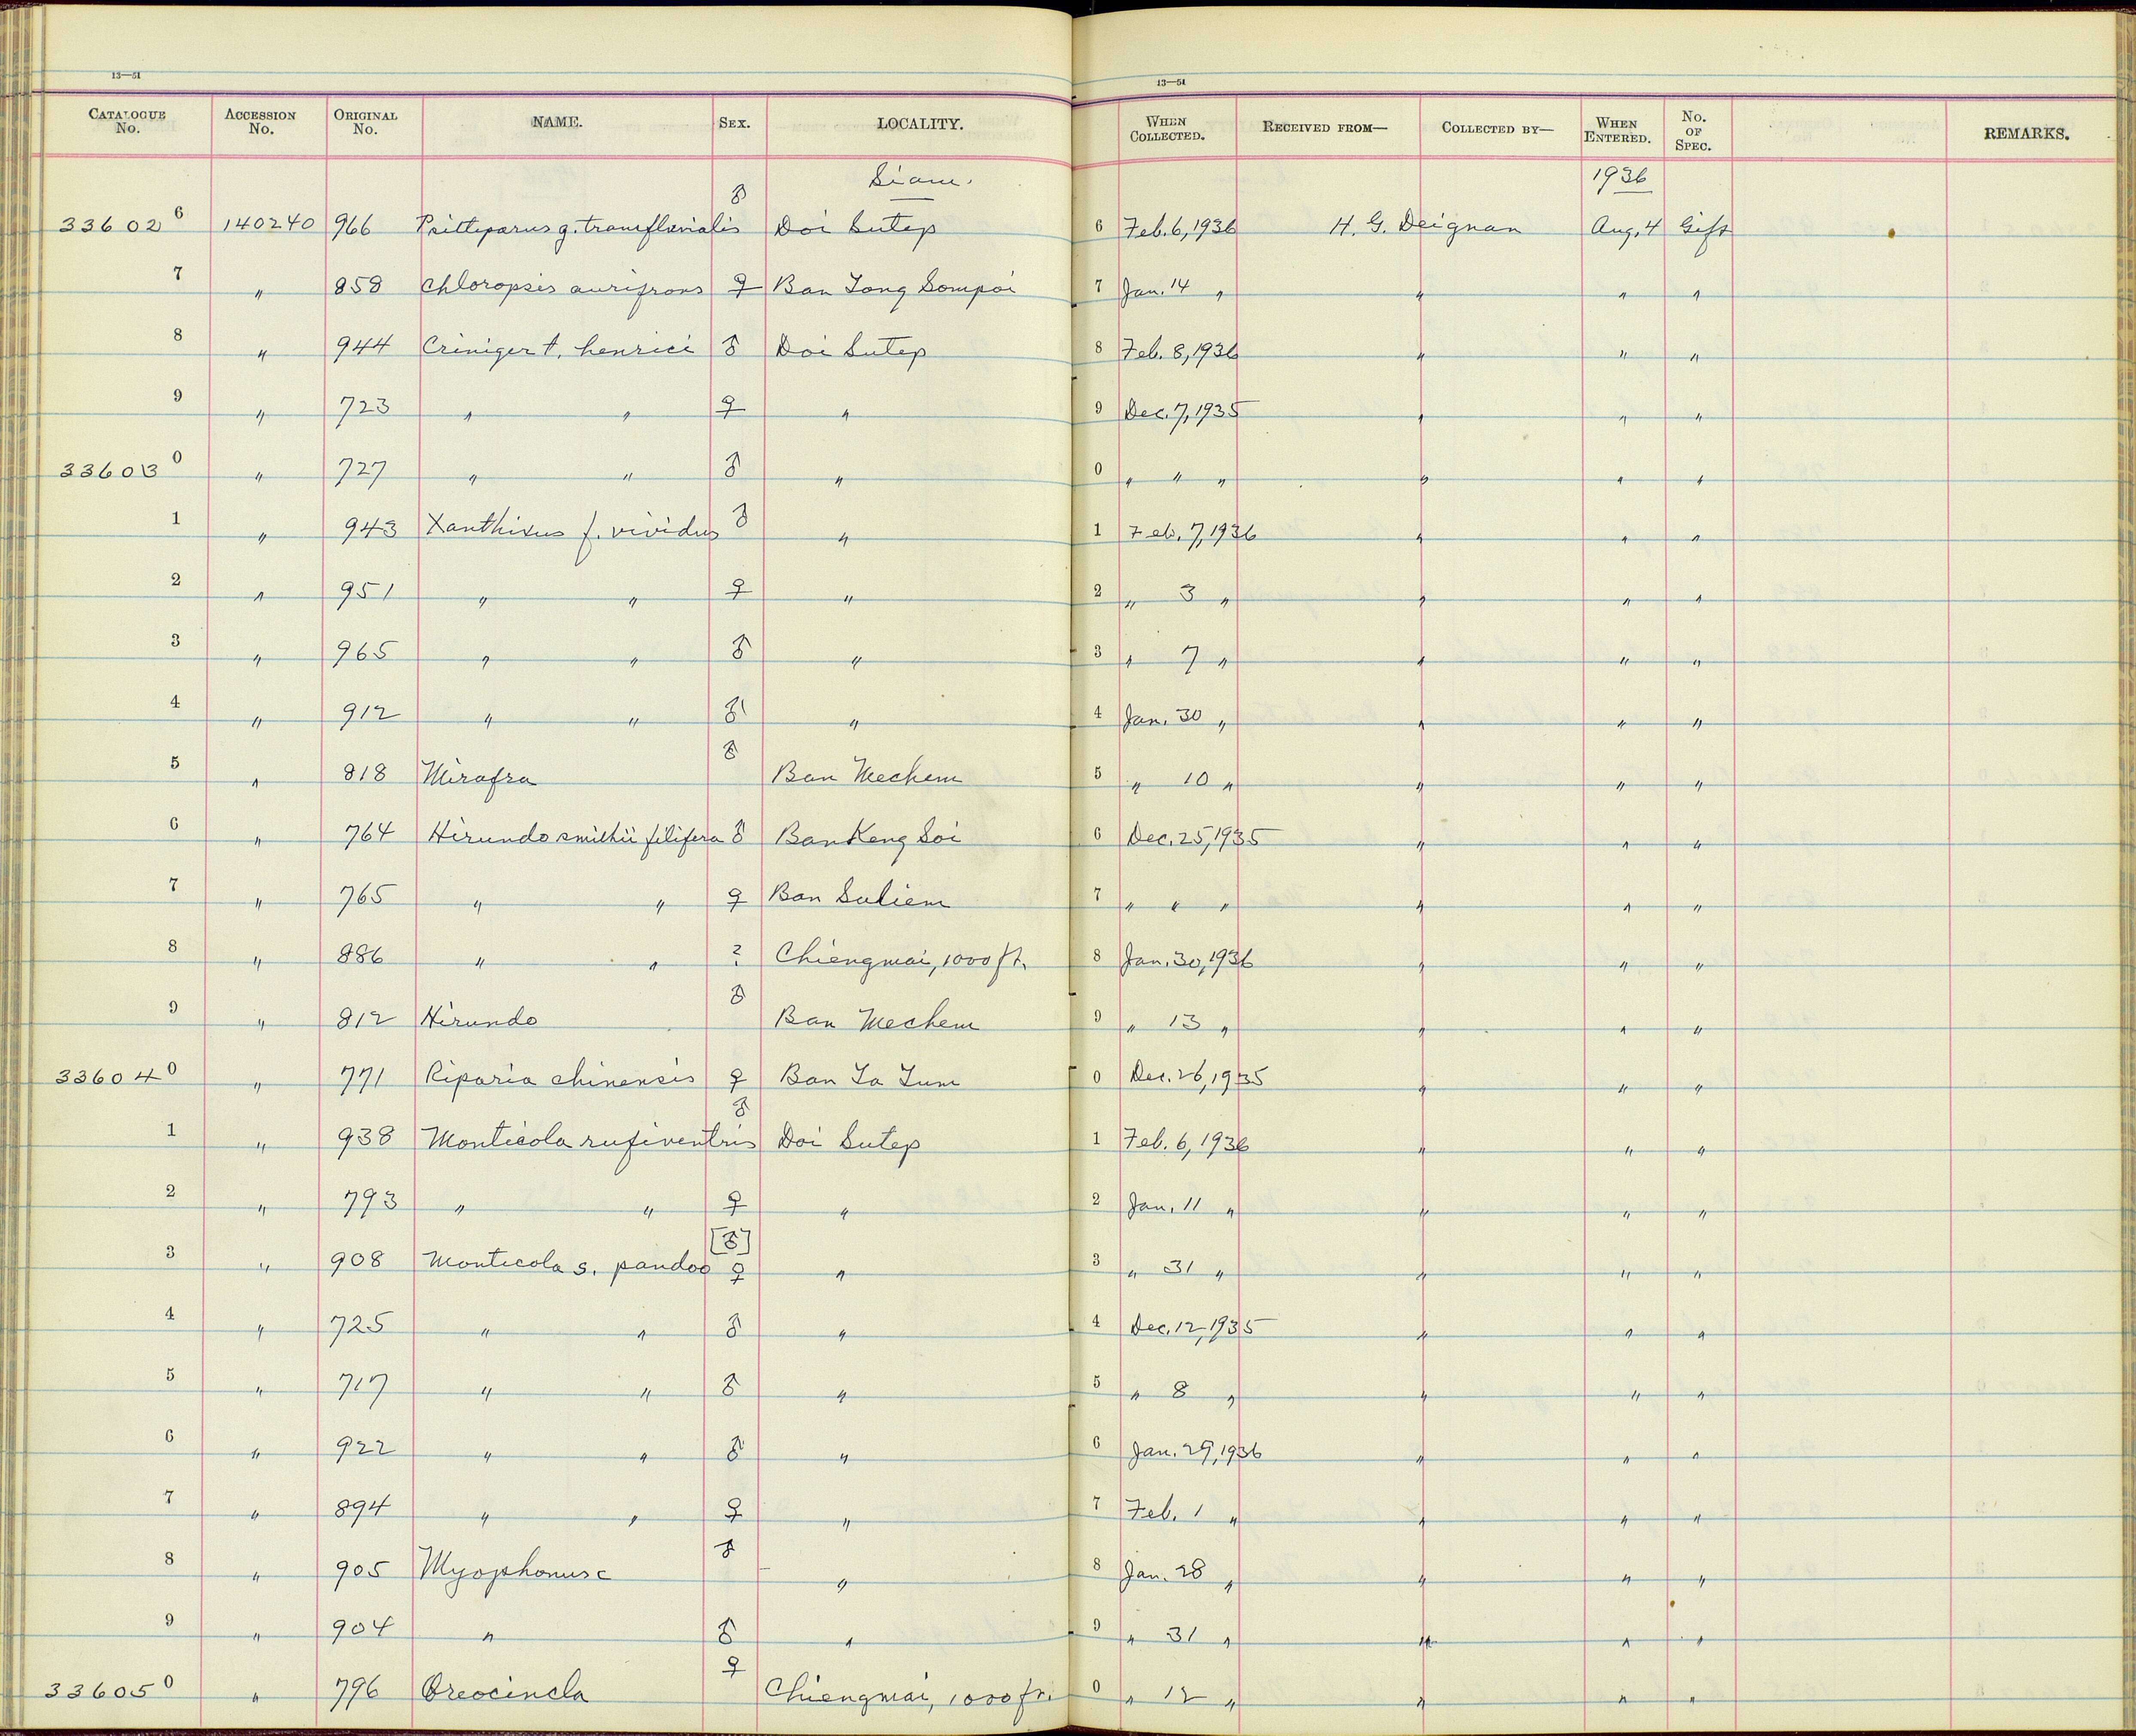 13—51 13—51
CATALOGUE No. ACCESSION No. ORIGINAL No. NAME. SEX. LOCALITY. WHEN COLLECTED. RECEIVED FROM— COLLECTED BY— WHEN ENTERED. No. OF SPEC. REMARKS.
Siam. 1936
33602 6 140240 966 Psittiparus g. transfluvialis ♂ Doi Sutep 6 Feb. 6, 1936 H. G. Deignan Aug. 4 Gift
7 " 858 Chloropsis aurifrons ♀ Ban Tong Sompoi 7 Jan. 14 " " " "
8 " 944 Criniger t. henrici ♂ Doi Sutep 8 Feb. 8, 1936 " " "
9 " 723 " " ♀ " 9 Dec. 7, 1935 " " "
33603 0 " 727 " " ♂ " 0 " " " " " "
1 " 943 Xanthixus f. vividus ♂ " 1 Feb. 7, 1936 " " "
2 " 951 " " ♀ " 2 " 3 " " " "
3 " 965 " " ♂ " 3 " 7 " " " "
4 " 912 " " ♂ " 4 Jan. 30 " " " "
5 " 818 Mirafra ♂ Ban Mechem 5 " 10 " " " "
6 " 764 Hirundo smithii filifera ♂ Ban Keng Soi 6 Dec. 25, 1935 " " "
7 " 765 " " ♀ Ban Saliem 7 " " " " " "
8 " 886 " " ? Chiengmai, 1000 ft. 8 Jan. 30, 1936 " " "
9 " 812 Hirundo ♂ Ban Mechem 9 " 13 " " " "
33604 0 " 771 Riparia chinensis ♀ Ban Ta Tum 0 Dec. 26, 1935 " " "
1 " 938 Monticola rufiventris ♂ Doi Sutep 1 Feb. 6, 1936 " " "
2 " 793 " " ♀ " 2 Jan. 11 " " " "
3 " 908 Monticola s. pandoo [♂] ♀ " 3 " 31 " " " "
4 " 725 " " ♂ " 4 Dec. 12, 1935 " " "
5 " 717 " " ♂ " 5 " 8 " " " "
6 " 922 " " ♂ " 6 Jan. 29, 1936 " " "
7 " 894 " " ♀ " 7 Feb. 1 " " " "
8 " 905 Myophonus c ♂ " 8 Jan. 28 " " " "
9 " 904 " ♂ " 9 " 31 " " " "
33605 0 " 796 Oreocincla ♀ Chiengmai, 1000 ft. 0 " 12 " " " "